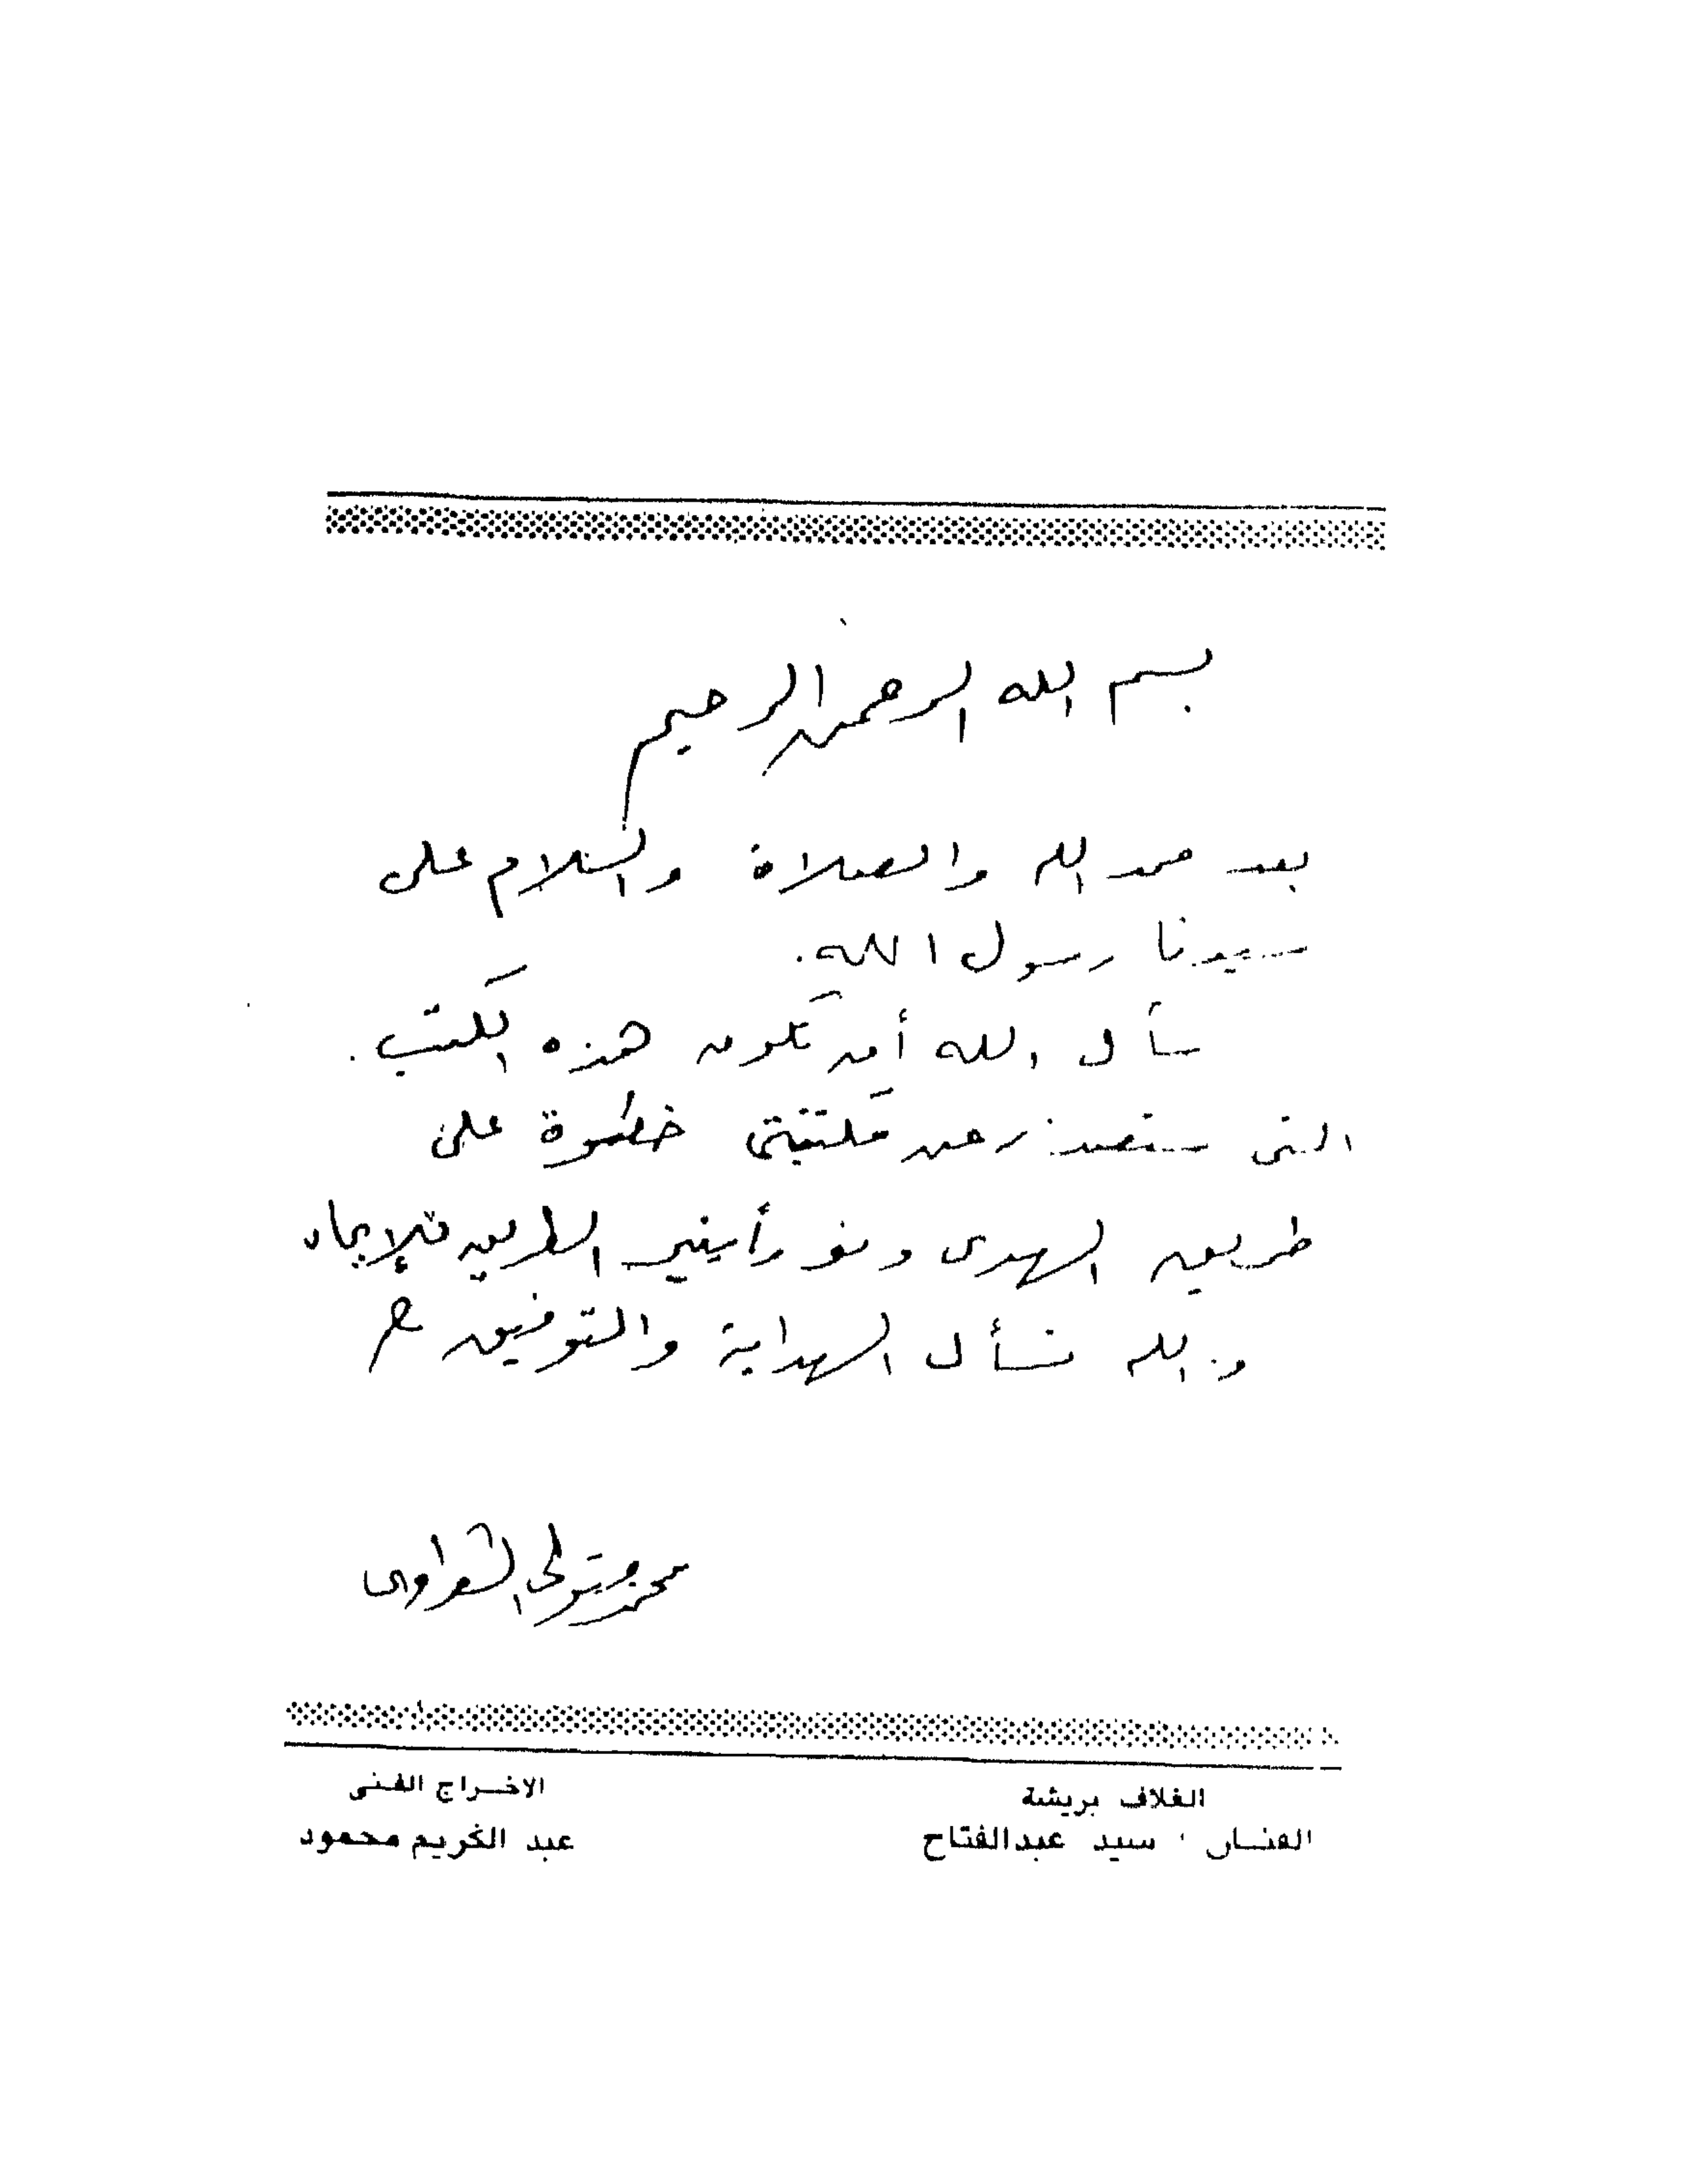 بسم الله الرحمن الرحيم
بعد حمد الله والصلاة والسلام على
سيدنا رسول الله.
سأل الله أن تكون هذه الكتب.
التى ستصدر عن مكتبتى خطوة على
طريق الهدى ونورا ينير الطريق للإيمان
والله نسأل الهداية والتوفيق
محمد متولى الشعراوى
الغلاف بريشة
الفنان سيد عبدالفتاح
الاخراج الفنى
عبد الكريم محمود